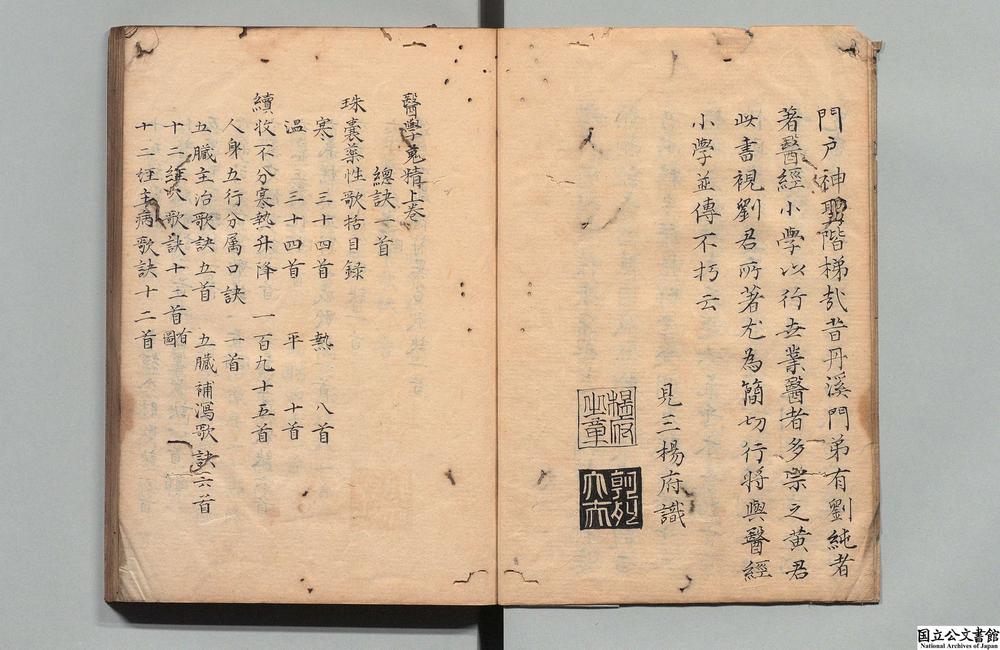 門戶神聖階梯哉昔丹溪門弟有劉純者
著醫經小學以行世業醫者多宗之黃君
此書視劉君所著尤為簡切行將與醫經
小學並傳不朽云
見三楊府識
楊府之章
醫學蒐精上卷
總訣一首
珠囊藥性歌括目録
寒 三十四首 熱 八首
温 三十四首 平 十首
續收不分寒熱升降 一百九十五首
人身五行分属口訣 一首
五臟主治歌訣五首 五臟補瀉歌訣六首
十二經 歌訣十二首 圖
十二經主病歌訣十二首
国立公文書館
National Archives of Japan